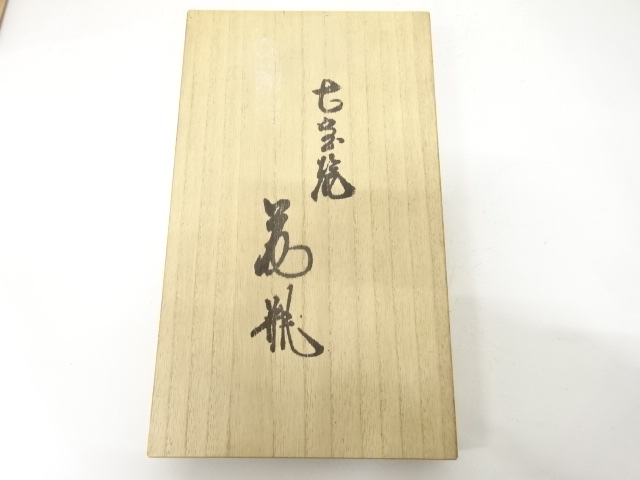 七宝籠
花瓶